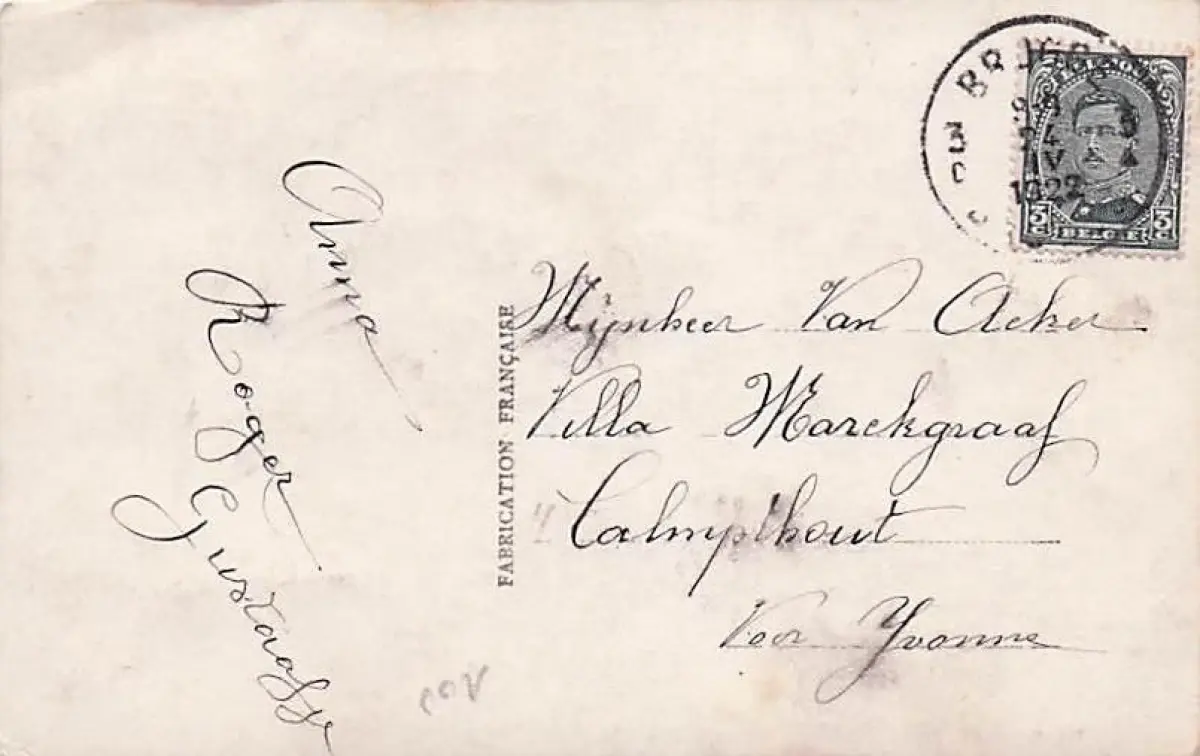 Anna
Roger
Gustaaf
FABRICATION FRANÇAISE
BELGIQUE
24
IV
1922
3 C
BELGIE
3 C
Mijnheer Van Acker
Villa Marckgraaf
Calmpthout
Voor Yvonne